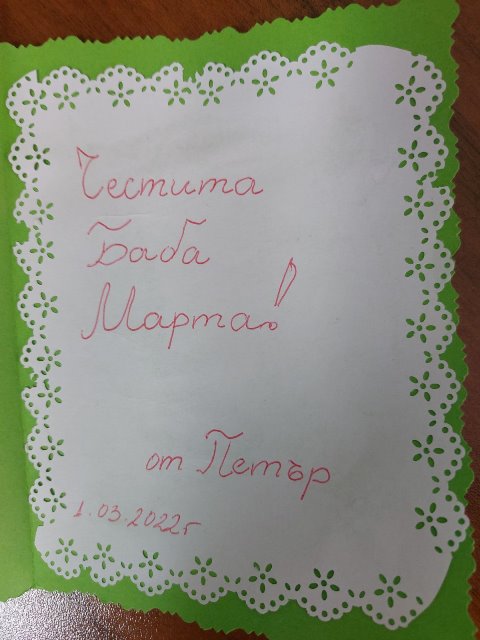 Честита
Баба
Марта!
от Петър
1.03.2022г